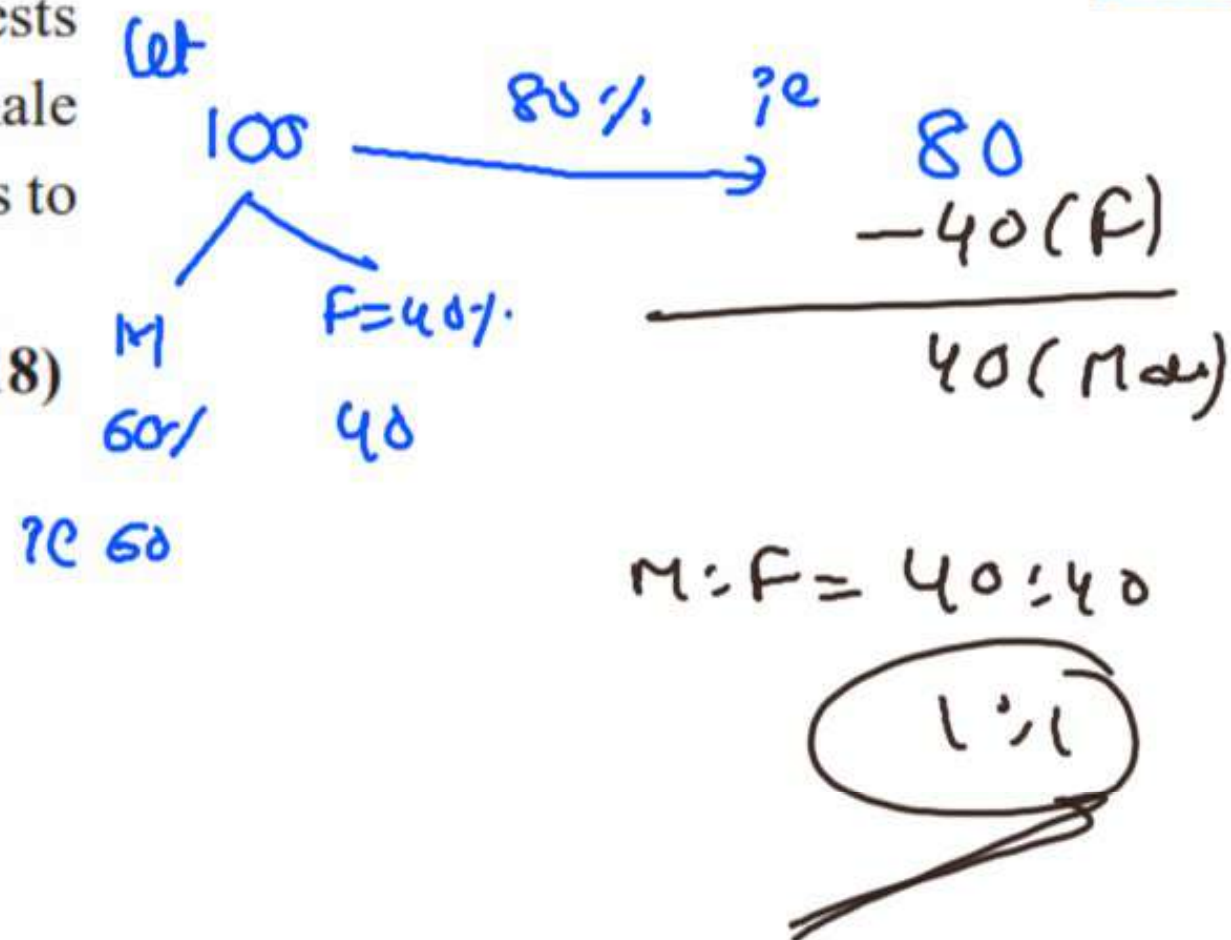 ests
ale
s to
8)
Let
100
80% ie
80
-40(F)
40(Male)
M
F=40%
60%
40
ie 60
M:F= 40:40
1:1